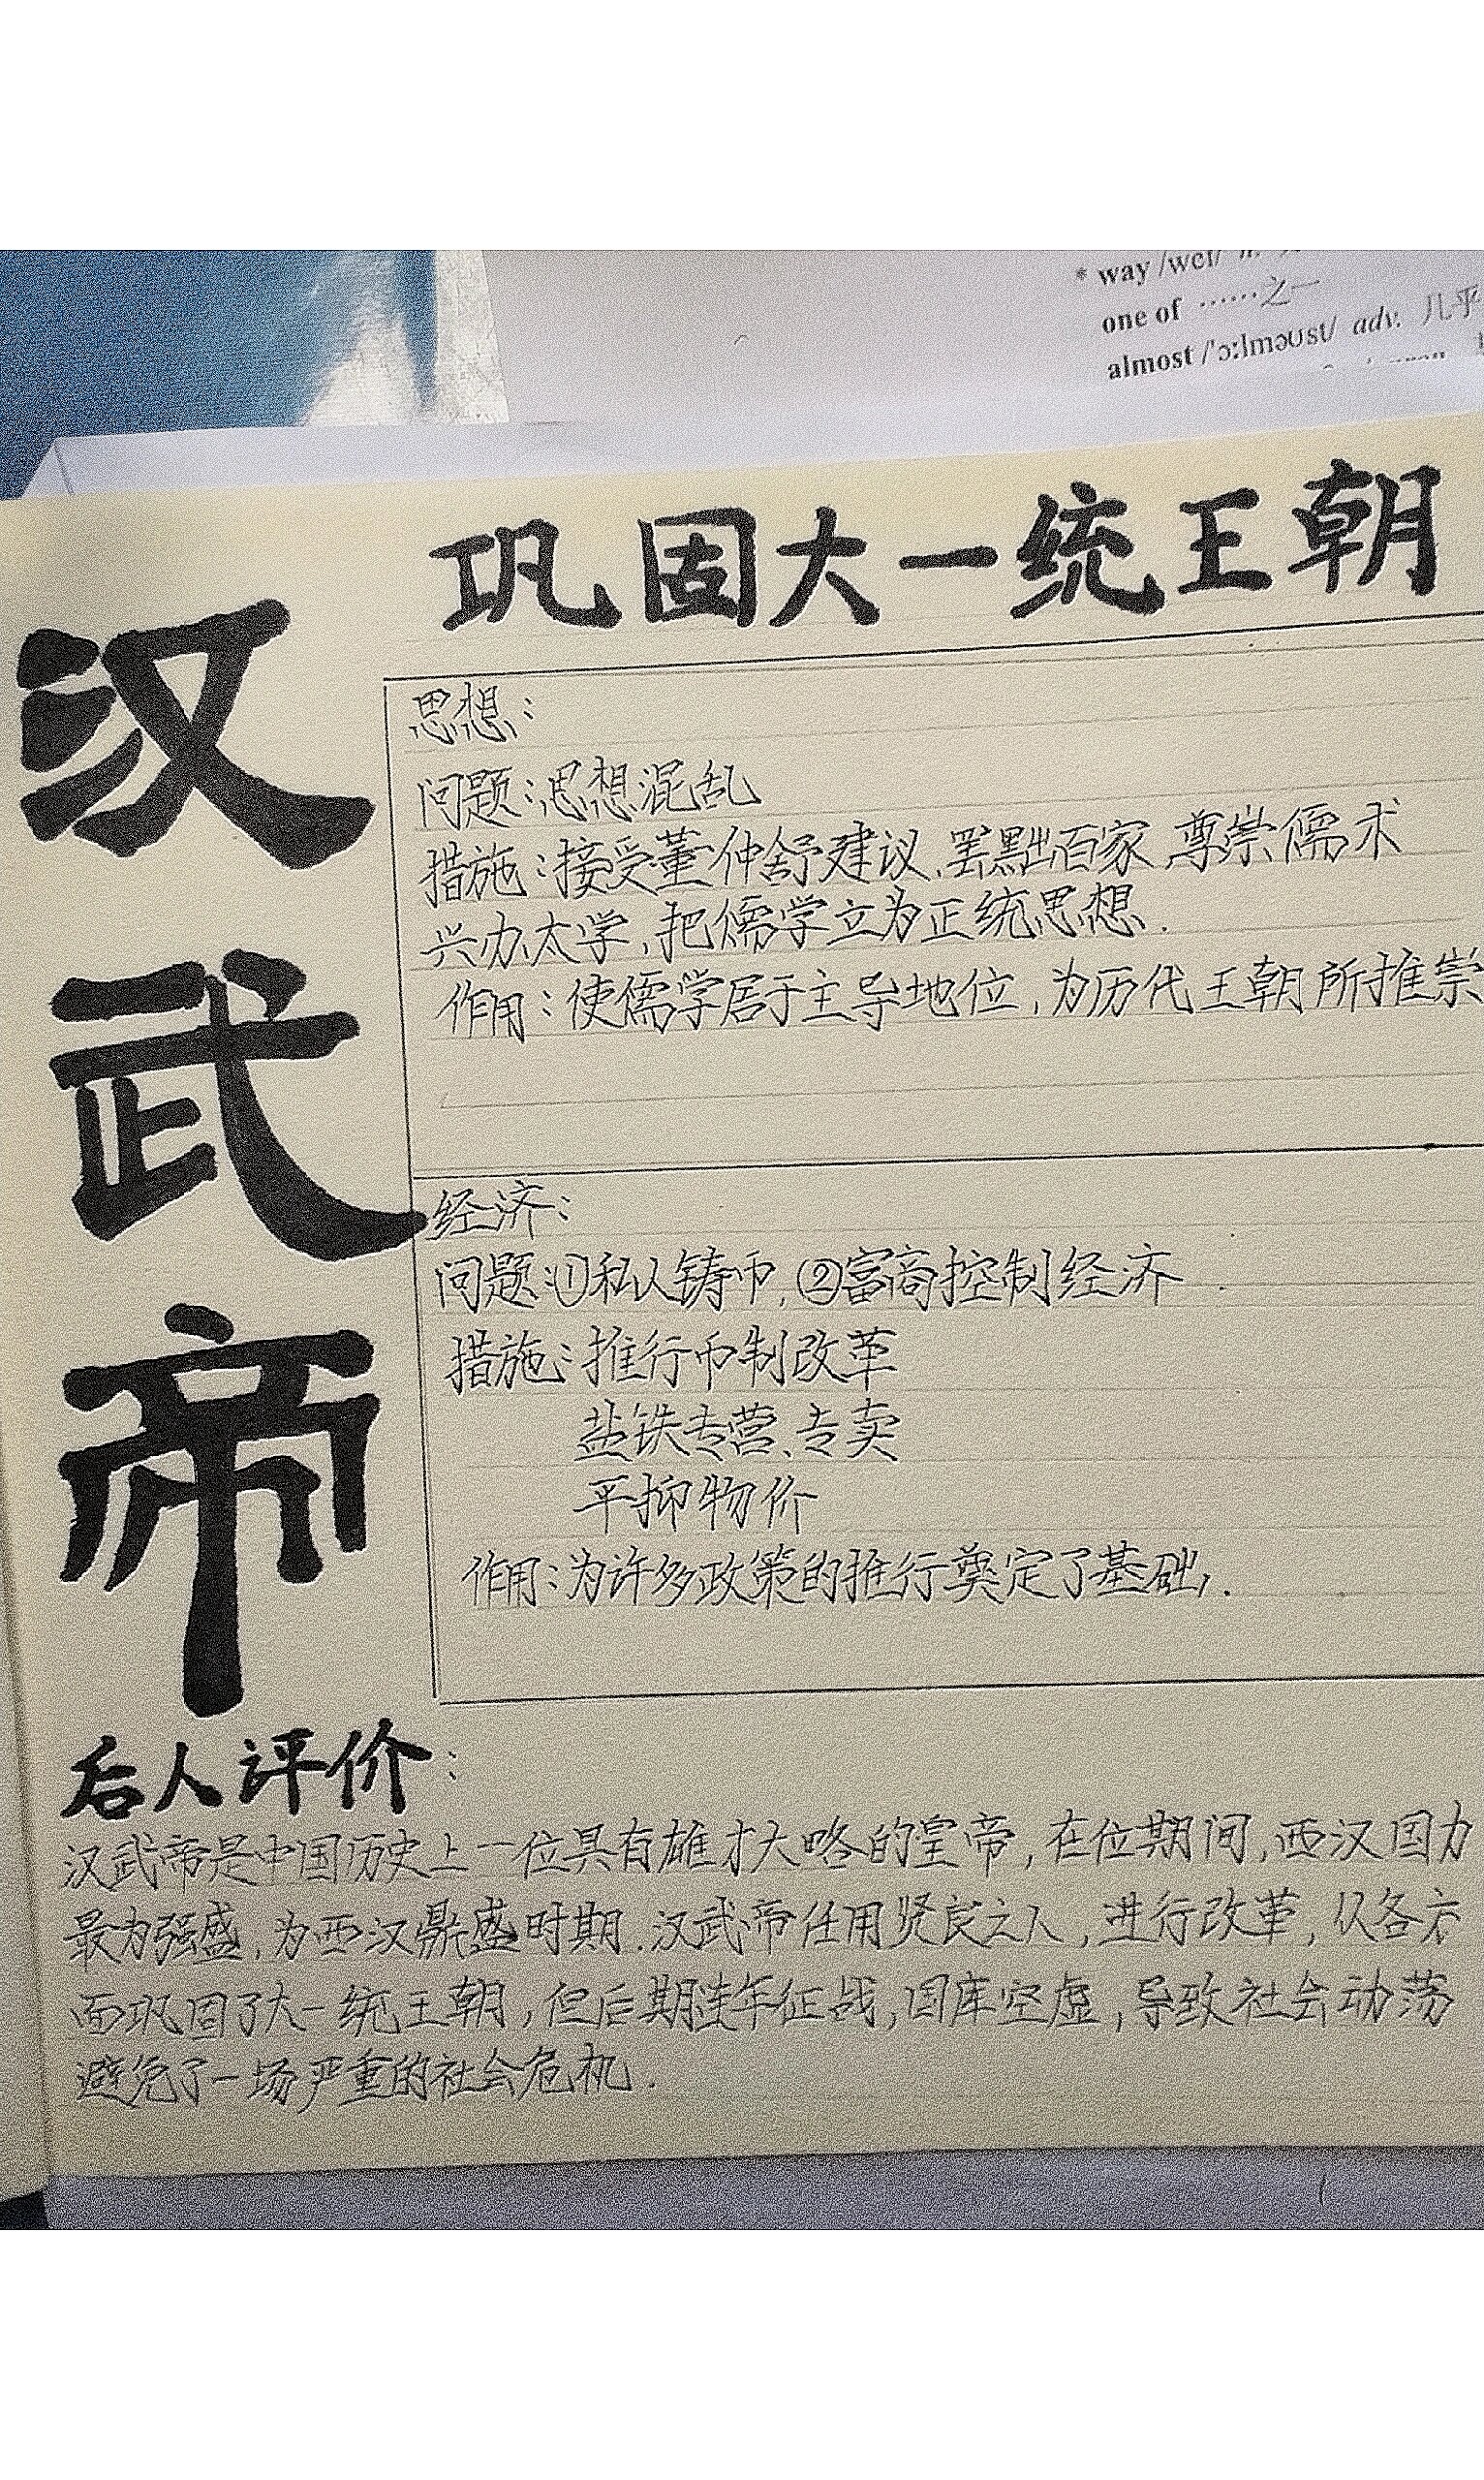 * way /weɪ/ n.
one of ……之一
almost /ˈɔːlməʊst/ adv. 几乎
巩固大一统王朝
汉武帝
思想:
问题:思想混乱
措施:接受董仲舒建议,罢黜百家,尊崇儒术
兴办太学,把儒学立为正统思想.
作用:使儒学居于主导地位,为历代王朝所推崇
经济:
问题:①私人铸币,②富商控制经济.
措施:推行币制改革
盐铁专营、专卖
平抑物价
作用:为许多政策的推行奠定了基础.
后人评价:
汉武帝是中国历史上一位具有雄才大咯的皇帝,在位期间,西汉国力
最为强盛,为西汉鼎盛时期.汉武帝任用贤良之人,进行改革,从各方
面巩固了大一统王朝,但后期连年征战,国库空虚,导致社会动荡
避免了一场严重的社会危机.